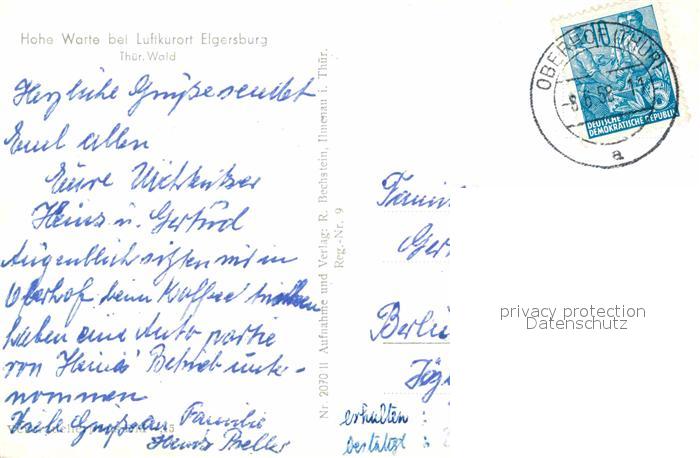 Hohe Warte bei Luftkurort Elgersburg
Thür. Wald
Herzliche Grüße sendet
Euch allen
Eure
Heinz u. Gertrud
Augenblicklich sitzen wir in
Oberhof beim Kaffee trinken
haben eine Auto partie
von Heinz' Betrieb unter-
nommen
Viele Grüße an Familie
Heinz
Nr. 2070 II Aufnahme und Verlag: R. Bechstein, Ilmenau i. Thür.
Reg.-Nr. 9
OBERHOF (THÜR)
a
10
DEUTSCHE
DEMOKRATISCHE REPUBLIK
Berlin
erhalten :
bestätigt :
privacy protection
Datenschutz